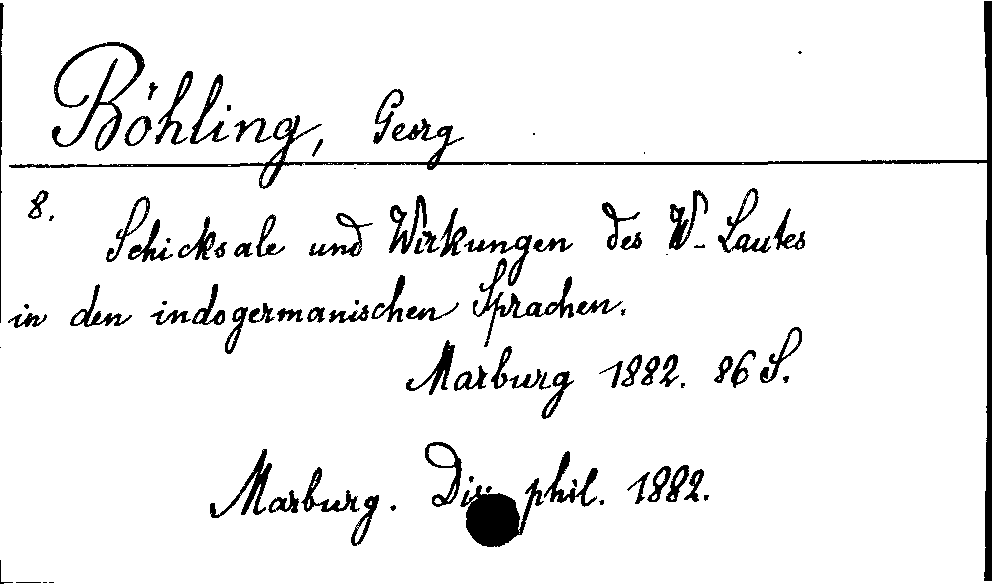 Böhling, Georg
8.
Schicksale und Wirkungen des W-Lautes
in den indogermanischen Sprachen.
Marburg 1882. 86 S.
Marburg. Dis. phil. 1882.